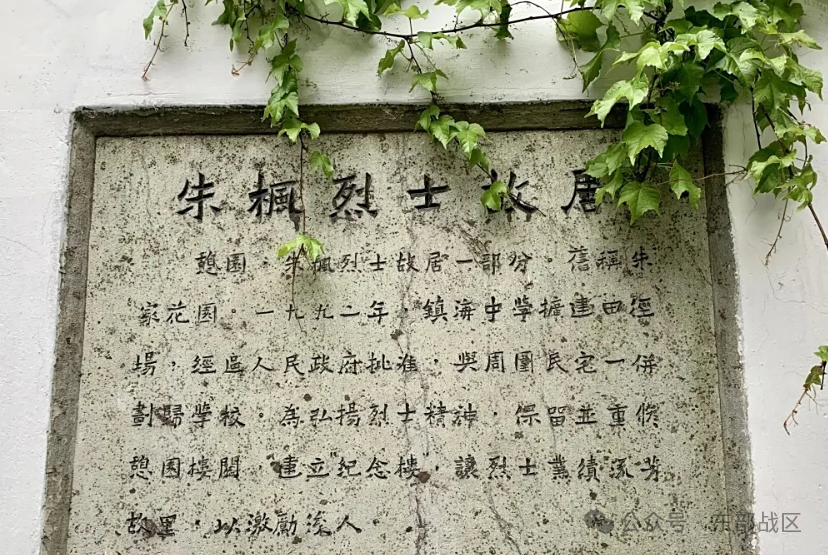 朱楓烈士故居
憩園,朱楓烈士故居一部分,舊稱朱
家花園。一九九二年,鎮海中學擴建田徑
場,經區人民政府批准,與周圍民宅一併
劃歸學校。為弘揚烈士精神,保留並重修
憩園樓閣,建立紀念樓,讓烈士業績流芳
故里,以激勵後人。
公众号·东部战区